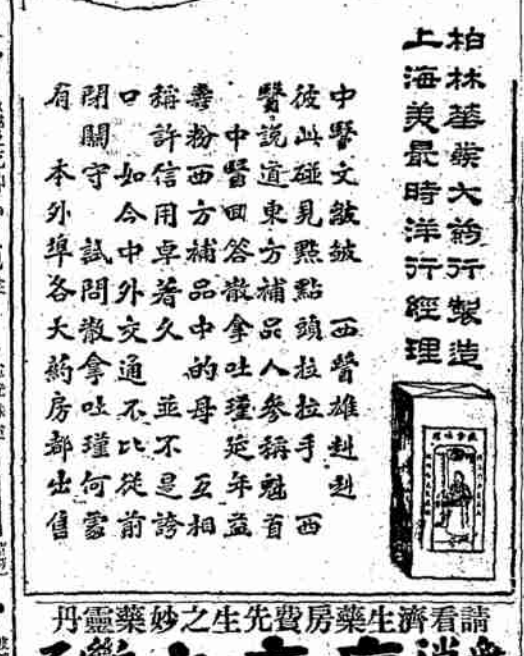 柏林華發大药行製造
上海美最時洋行經理
中醫文皺皺 西醫雄赳赳
彼此碰見點點頭拉拉手 西
醫說道東方補品人參稱魁首
中醫回答散拿吐瑾延年益
壽粉西方補品中的母 互相
稱許信用卓著久 並不是誇
口 如今中外交通不比從前
閉關守 試問散拿吐瑾何處
有 本外埠各大药房都出售
請看濟生藥房費先生之妙藥靈丹